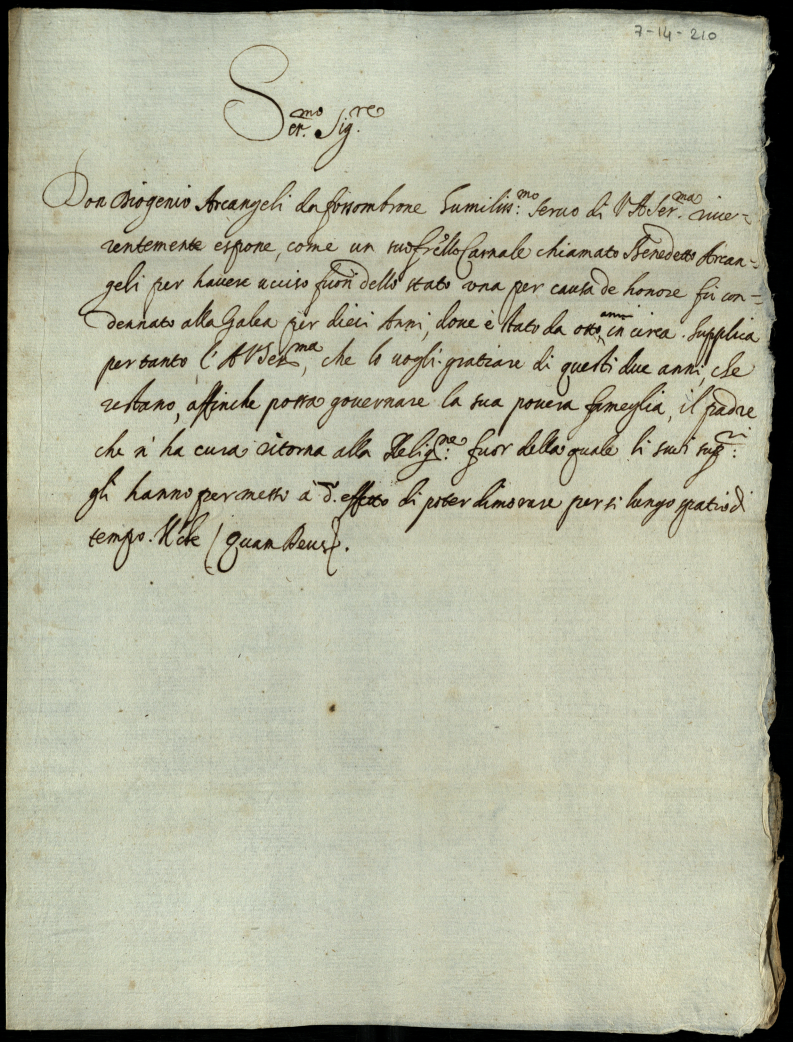 7-14-210
Ser.mo Sig.re
Don Diogenio Arcangeli da fossombrone humiliss:mo seruo di V A Ser.ma riue-
rentemente espone, come un suo frello Carnale chiamato Benedetto Arcan-
geli per hauere ucciso fuori dello stato una per causa de honore fu con-
dennato alla Galea per dieci Anni, doue è stato da otto anni in circa. Supplica
per tanto l'A V Ser.ma, che lo uogli gratiare di questi due anni, che
restano, affinche possa gouernare la sua pouera fameglia, il padre
che n'ha cura ritorna alla Relig:ne fuor della quale li suoi sup:ri
gli hanno permesso à d.o effetto di poter dimorare per si lungo spatio di
tempo. Il che (quam Deus).